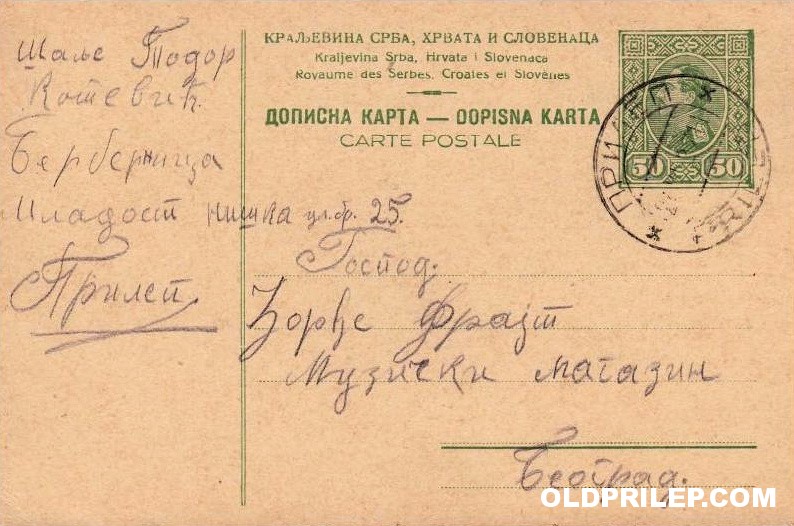 КРАЉЕВИНА СРБА, ХРВАТА И СЛОВЕНАЦА
Kraljevina Srba, Hrvata i Slovenaca
Royaume des Serbes, Croates et Slovènes
ДОПИСНА КАРТА — DOPISNA KARTA
CARTE POSTALE
50 50
ПРИЛЕП
Шаље Тодор
Котевић
Берберница
Младост нишка ул. бр. 25.
Прилеп
Господ.
Ђорђе Фрајт
Музички магазин
Београд.
OLDPRILEP.COM